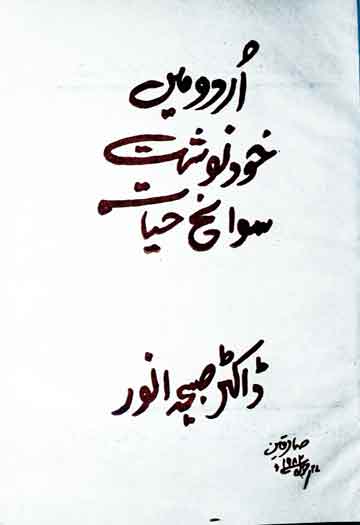 اُردو میں
خود نوشت
سوانح حیات
ڈاکٹر صبیحہ انور
صادقین